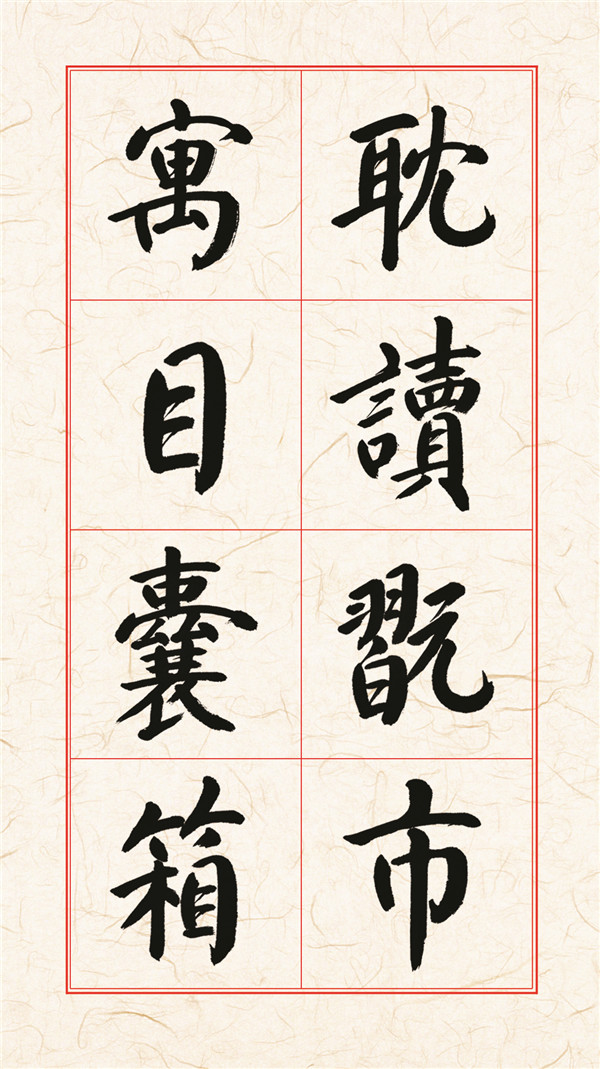 耽讀翫市
寓目囊箱